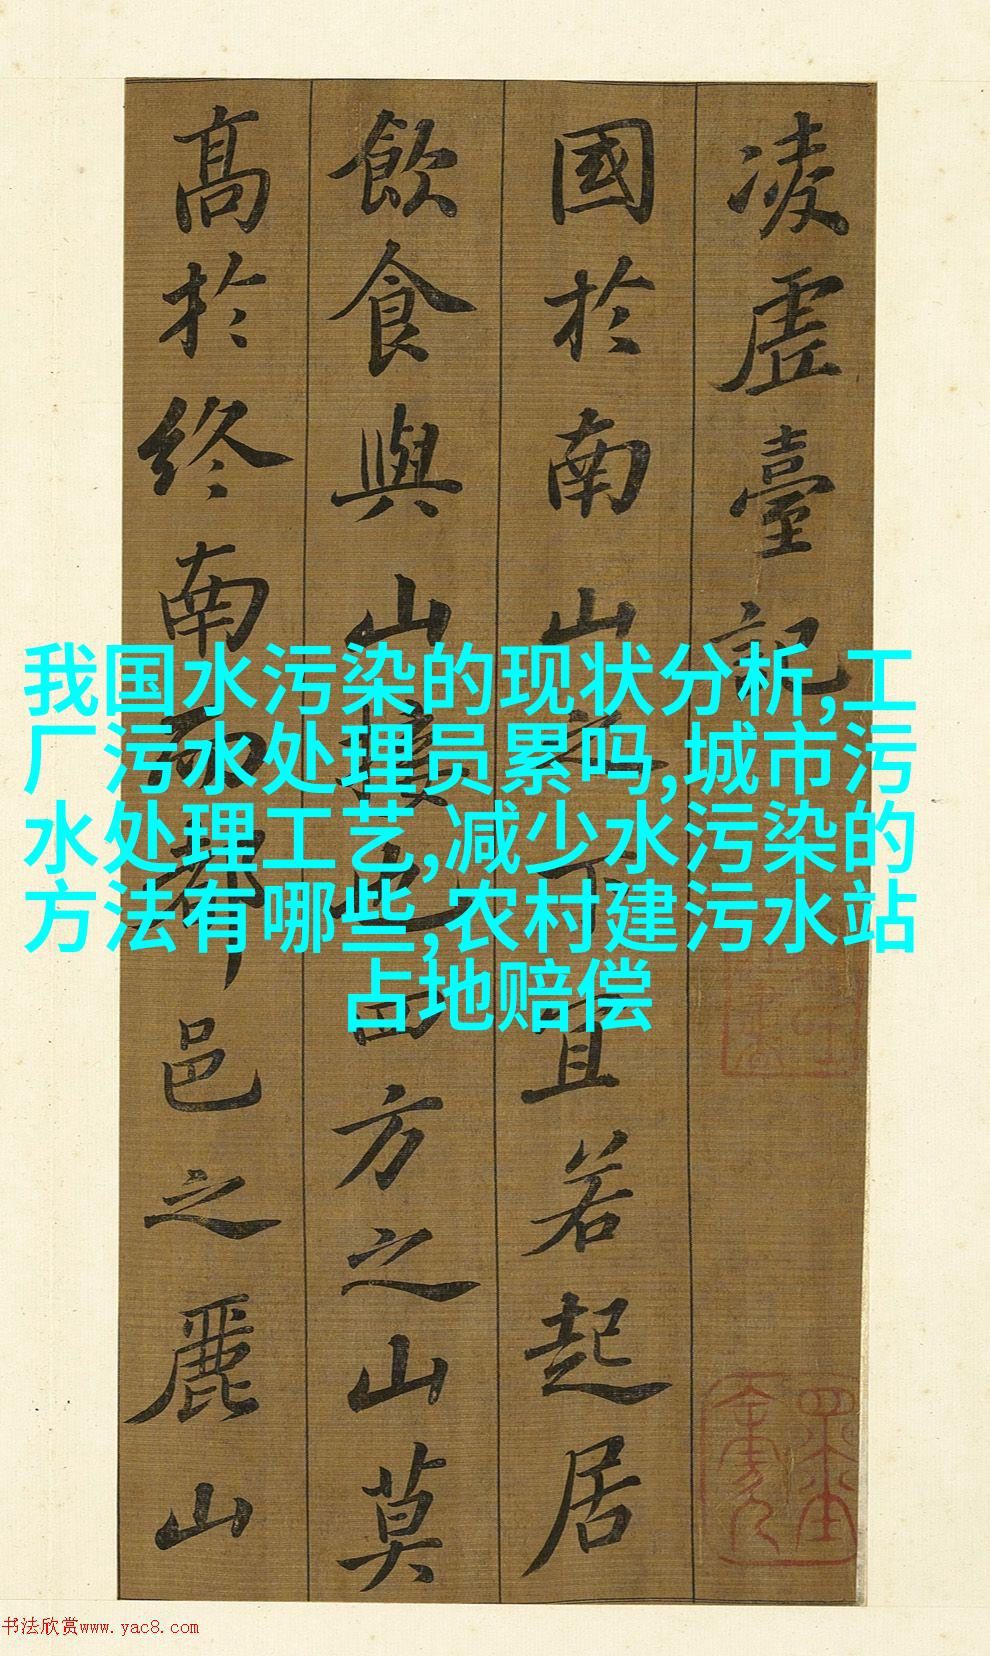 凌虛臺記
國於南山之下宜若起居
飲食與山接也四方之山莫
高於終南而都邑之麗山
我国水污染的现状分析,工
厂污水处理员累吗,城市污
水处理工艺,减少水污染的
方法有哪些,农村建污水站
占地赔偿
书法欣赏www.yac8.com